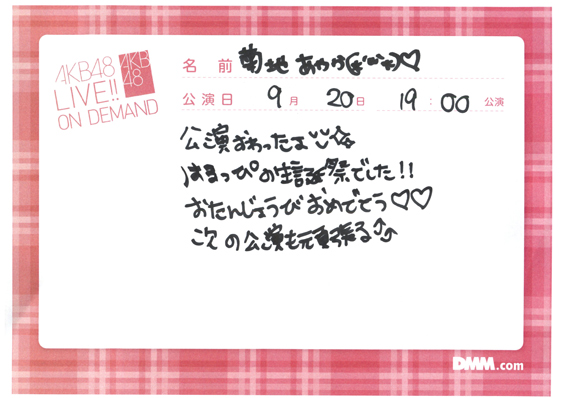 AKB48
LIVE!!
ON DEMAND
AKB
48
名 前 菊地 あやか(*´˘`*)♡
公演日 9月 20日 19:00 公演
公演おわったよ☆
はるっぴの生誕祭でした!!
おたんじょうびおめでとう♡♡
次の公演も頑張る⤴⤴
DMM.com